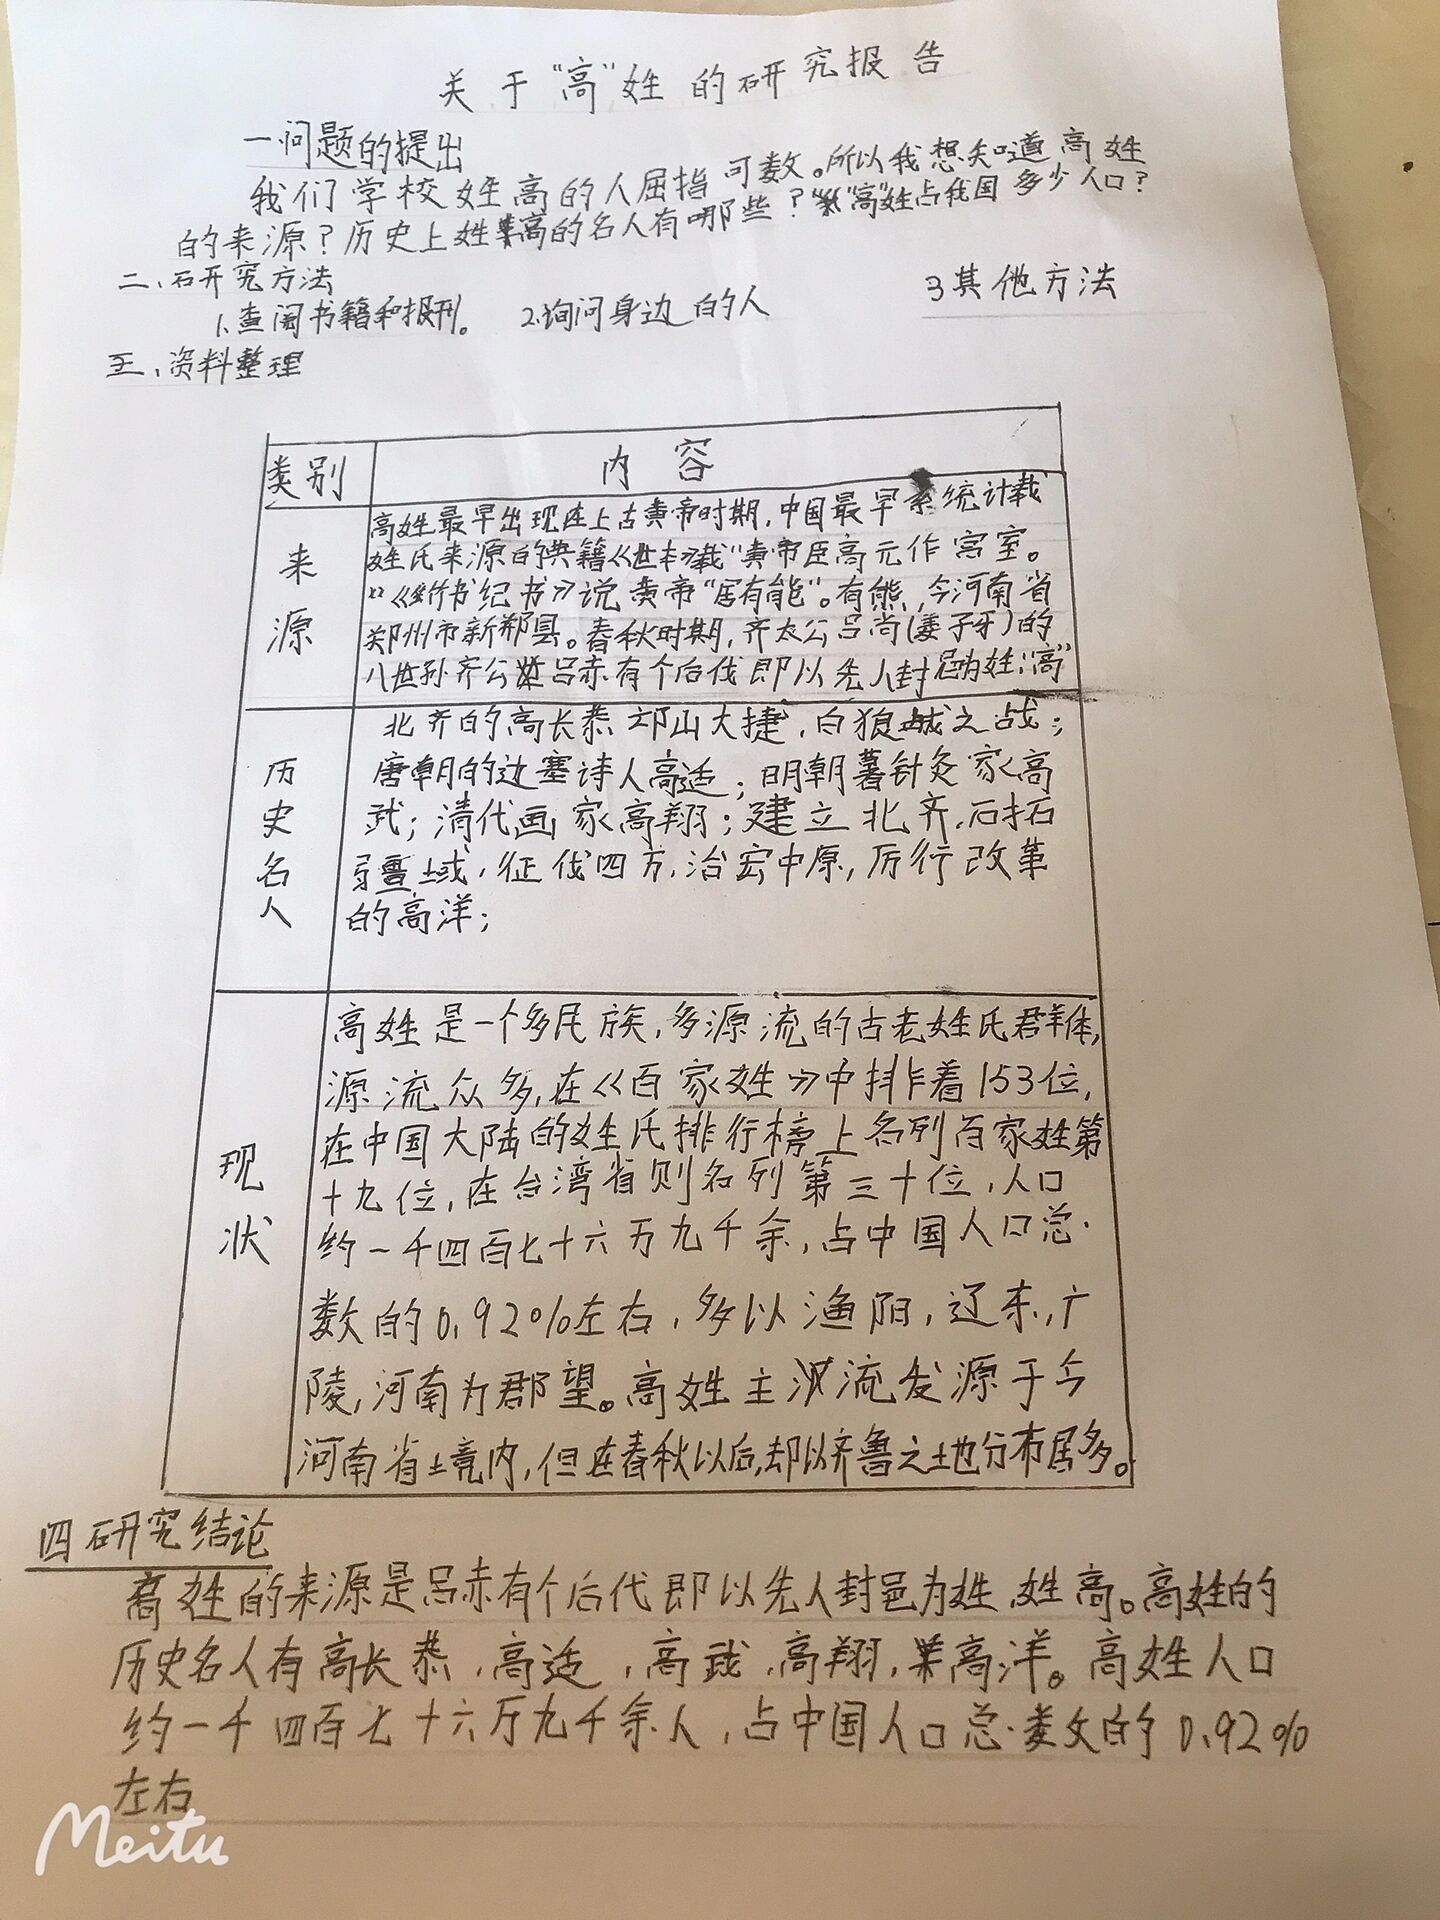 关于“高”姓的研究报告
一问题的提出
我们学校姓高的人屈指可数。所以我想知道高姓
的来源?历史上姓高的名人有哪些?“高”姓占我国多少人口?
二、研究方法
1、查阅书籍和报刊。 2、询问身边的人 3其他方法
三、资料整理
类别 内容
来源
高姓最早出现在上古黄帝时期,中国最早系统计载
姓氏来源的典籍《世本》载“黄帝臣高元作宫室。
”《竹书纪书》说黄帝“居有能”。有熊,今河南省
郑州市新郑县。春秋时期,齐太公吕尚(姜子牙)的
八世孙齐公吕赤有个后代即以先人封邑为姓:“高”
历史名人
北齐的高长恭邙山大捷,白狼城之战;
唐朝的边塞诗人高适;明朝著针灸家高
武;清代画家高翔;建立北齐,石拓
疆域,征伐四方,治宏中原,厉行改革
的高洋;
现状
高姓是一个多民族,多源流的古老姓氏群体,
源流众多,在《百家姓》中排着153位,
在中国大陆的姓氏排行榜上名列百家姓第
十九位,在台湾省则名列第三十位,人口
约一千四百七十六万九千余,占中国人口总
数的0.92%左右,多以渔阳,辽东,广
陵,河南为郡望。高姓主流发源于今
河南省境内,但在春秋以后,却以齐鲁之土地分布居多。
四研究结论
高姓的来源是吕赤有个后代即以先人封邑为姓,姓高。高姓的
历史名人有高长恭,高适,高武,高翔,高洋。高姓人口
约一千四百七十六万九千余人,占中国人口总数的0.92%
左右
Meitu